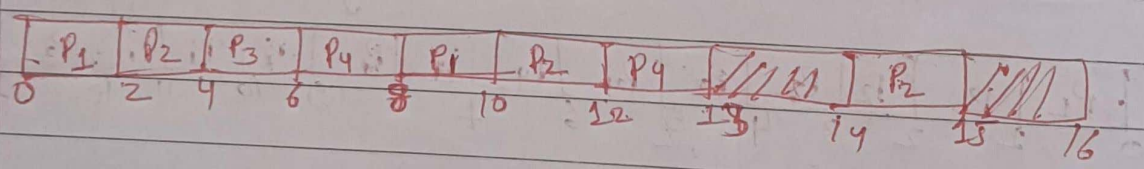 P1 P2 P3 P4 P1 P2 P4 P2
0 2 4 6 8 10 12 13 14 15 16